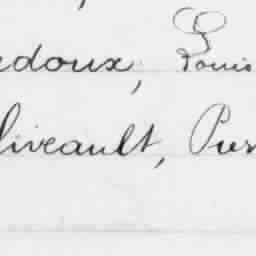 edoux, Louis
liveault, Pier